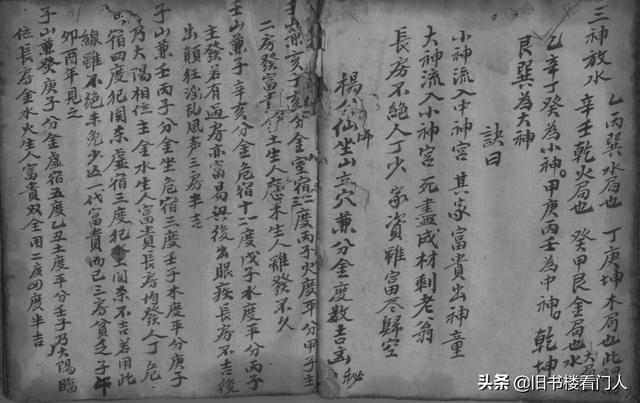 三神放水
乙丙巽水局也 丁庚坤木局也此
辛壬乾火局也 癸甲艮金局也水
乙辛丁癸為小神。甲庚丙壬為中神。乾坤
艮巽為大神
訣曰
小神流入中神宮 其家富貴出神童
大神流入小神宮 死盡成材剩老翁
長房不絕人丁少 家資雖富尽歸空
楊公仙師坐山立穴兼分金度数吉凶秘
壬山兼亥 辛亥分金室宿二度丙子火度平分甲子主
二房發富貴 土生人應未生人雖發不久
壬山兼子 辛亥分金危宿十二度戊子水度平分丙子
主發若有過房亦富易興後出眼疾長房不吉後
出顛狂淫乱風声三房半吉
子山兼壬 丙子分金坐危宿三度壬子木度平分庚子
乃太陽相位主金水生人富貴長房均發人丁危
宿四度犯関杀虚宿三度犯関杀不吉若用此
線雖不絕未免少亡一代富貴而已三房貧乏子午
卯酉年見之
子山兼癸 庚子分金虚宿五度乙丑土度平分壬子乃太陽臨
位長房金水火生人富貴双全用二度四度半吉
头条 @旧书楼看门人